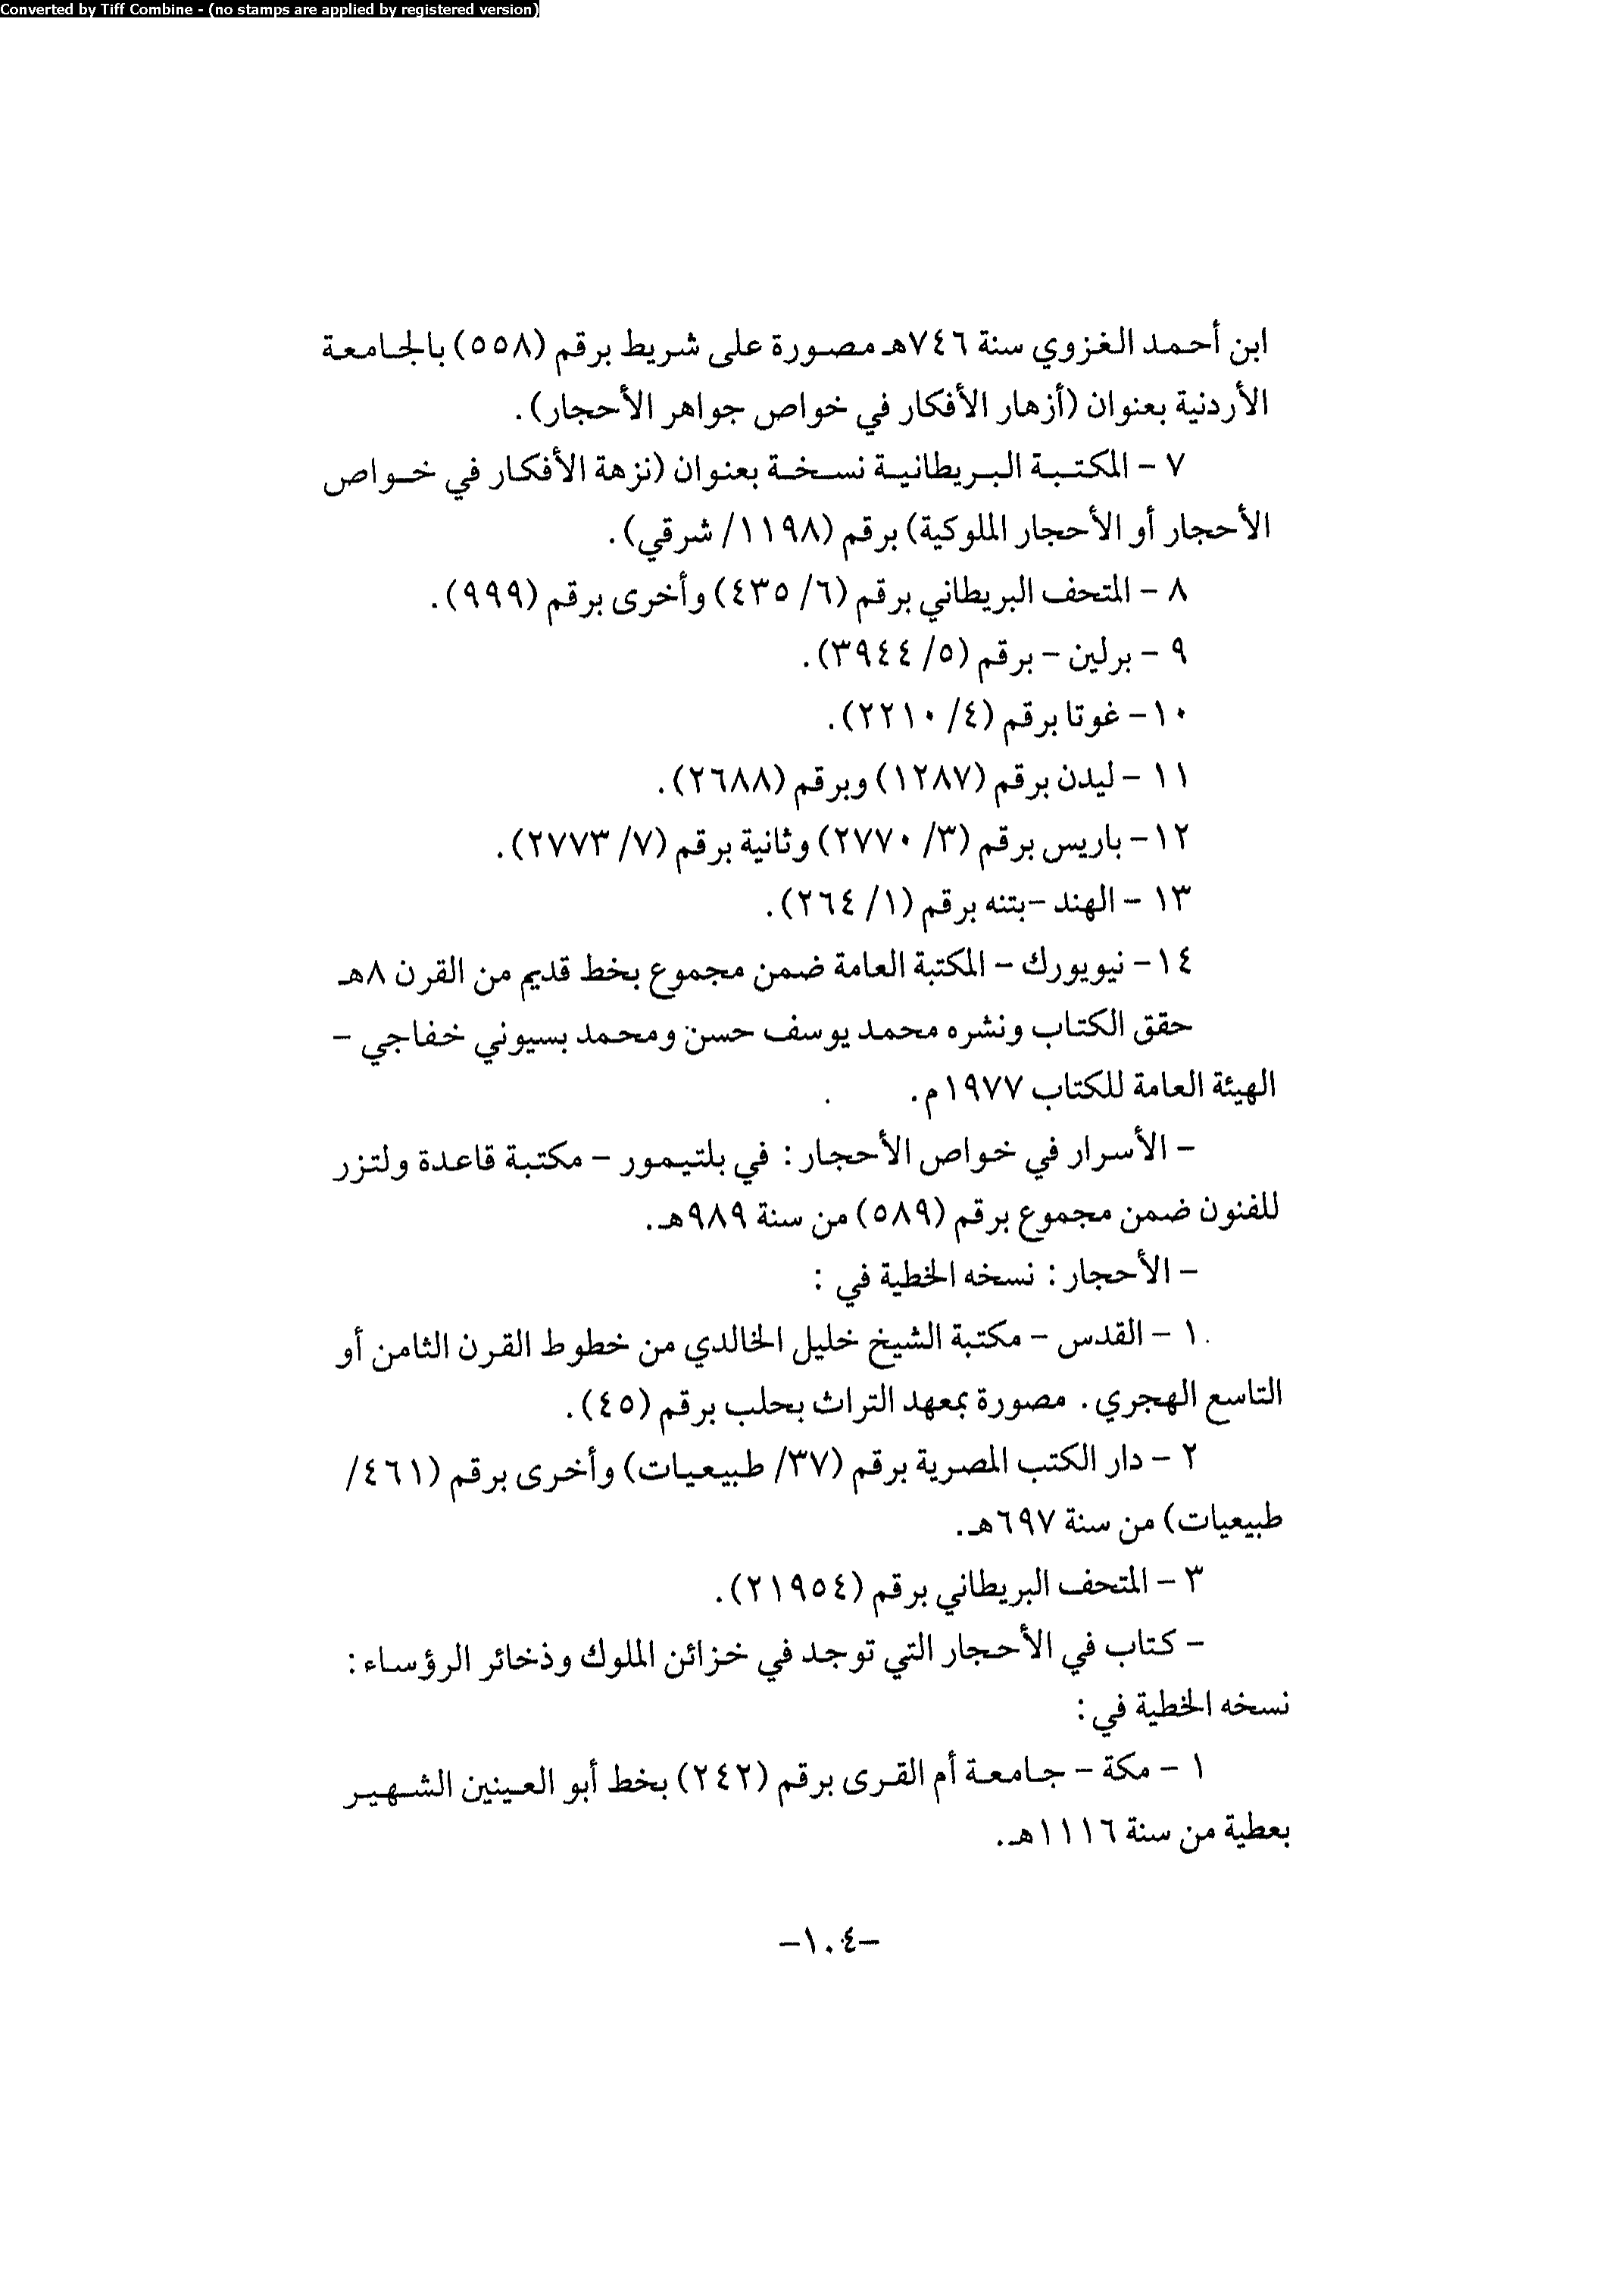 Converted by Tiff Combine - (no stamps are applied by registered version)
ابن أحمد الغزوي سنة ٧٤٦هـ مصورة على شريط برقم (٥٥٨) بالجامعة
الأردنية بعنوان (أزهار الأفكار في خواص جواهر الأحجار).
٧ - المكتبة البريطانية نسخة بعنوان (نزهة الأفكار في خواص
الأحجار أو الأحجار الملوكية) برقم (١١٩٨/ شرقي).
٨ - المتحف البريطاني برقم (٦/ ٤٣٥) وأخرى برقم (٩٩٩).
٩ - برلين - برقم (٥/ ٣٩٤٤).
١٠- غوتا برقم (٤/ ٢٢١٠).
١١ - ليدن برقم (١٢٨٧) وبرقم (٢٦٨٨).
١٢- باريس برقم (٣/ ٢٧٧٠) وثانية برقم (٧/ ٢٧٧٣).
١٣ - الهند -بتنه برقم (١/ ٢٦٤).
١٤- نيويورك - المكتبة العامة ضمن مجموع بخط قديم من القرن ٨هـ
حقق الكتاب ونشره محمد يوسف حسن ومحمد بسيوني خفاجي -
الهيئة العامة للكتاب ١٩٧٧م.
- الأسرار في خواص الأحجار: في بلتيمور - مكتبة قاعدة ولتزر
للفنون ضمن مجموع برقم (٥٨٩) من سنة ٩٨٩هـ.
- الأحجار: نسخه الخطية في :
١ - القدس - مكتبة الشيخ خليل الخالدي من خطوط القرن الثامن أو
التاسع الهجري. مصورة بمعهد التراث بحلب برقم (٤٥).
٢ - دار الكتب المصرية برقم (٣٧/ طبيعيات) وأخرى برقم (٤٦١/
طبيعيات) من سنة ٦٩٧هـ.
٣ - المتحف البريطاني برقم (٢١٩٥٤).
- كتاب في الأحجار التي توجد في خزائن الملوك وذخائر الرؤساء:
نسخه الخطية في:
١ - مكة - جامعة أم القرى برقم (٢٤٢) بخط أبو العينين الشهير
بعطية من سنة ١١١٦هـ.
-١٠٤-